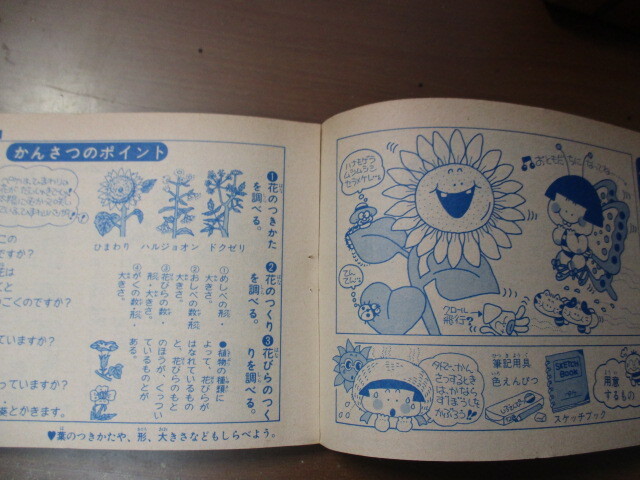 かんさつのポイント
ひまわり ハルジョオン ドクゼリ
❶花のつきかた
を調べる。
❷花のつくり
を調べる。
①めしべの形・
大きさ。
②おしべの形・
大きさ。
③花びらの数・
形・大きさ。
④がくの数・形・
大きさ。
❸花びらのつく
りを調べる。
●植物の種類に
よって、花びらが
はなれているもの
と、花びらのもと
のほうが、くっつい
ているものとが
ある。
この
ですか?
こと
ごくのですか?
ていますか?
っていますか?
とかきます。
♥葉のつきかたや、形、大きさなどもしらべよう。
ハナモゲラ
てん
てんっ
クロール
飛行?
おともだちに
かんさつするとき
ぼうしを
かぶろう!
筆記用具
色えんぴつ
SKETCH
BOOK
スケッチブック
用意
するもの